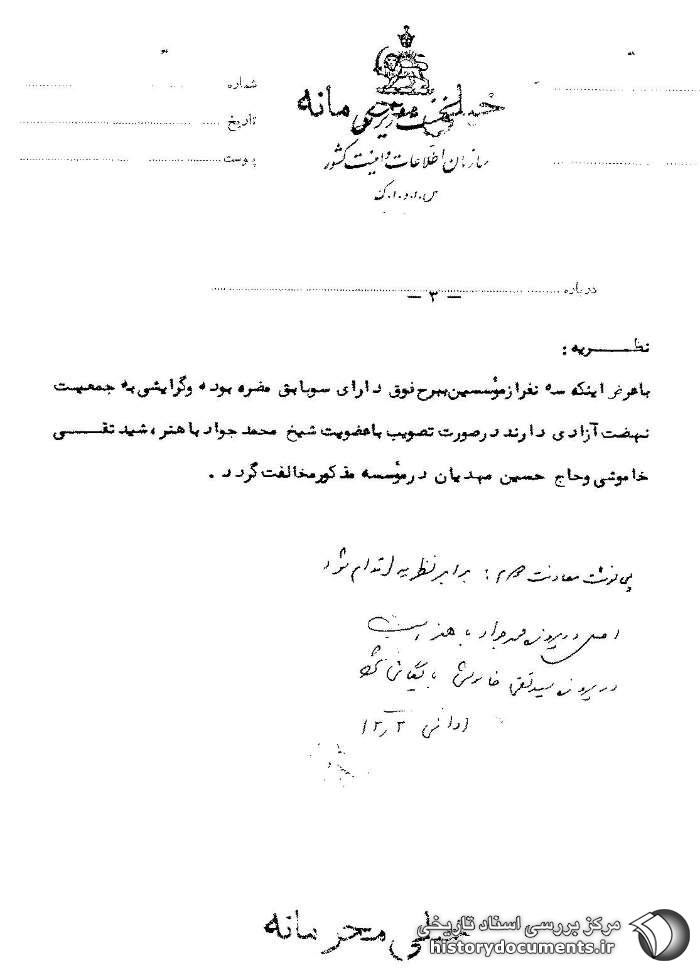 خیلی محرمانه
نخست وزیری
سازمان اطلاعات و امنیت کشور
س.ا.و.ا.ک
شماره
تاریخ
پیوست
درباره
- ۳ -
نظریه :
باعرض اینکه سه نفر از مؤسسین بشرح فوق دارای سوابق مضره بوده وگرایشی به جمعیت
نهضت آزادی دارند درصورت تصویب باعضویت شیخ محمد جواد باهنر ، سید تقی
خاموشی وحاج حسین مهدیان درمؤسسه مذکور مخالفت گردد .
پی نوشت معاونت : برابر نظریه اقدام شود
اصل در پرونده محمدجواد باهنر است
در پرونده سیدتقی خاموشی بایگانی شود
۱۲٫۳
خیلی محرمانه
مرکز بررسی اسناد تاریخی
historydocuments.ir